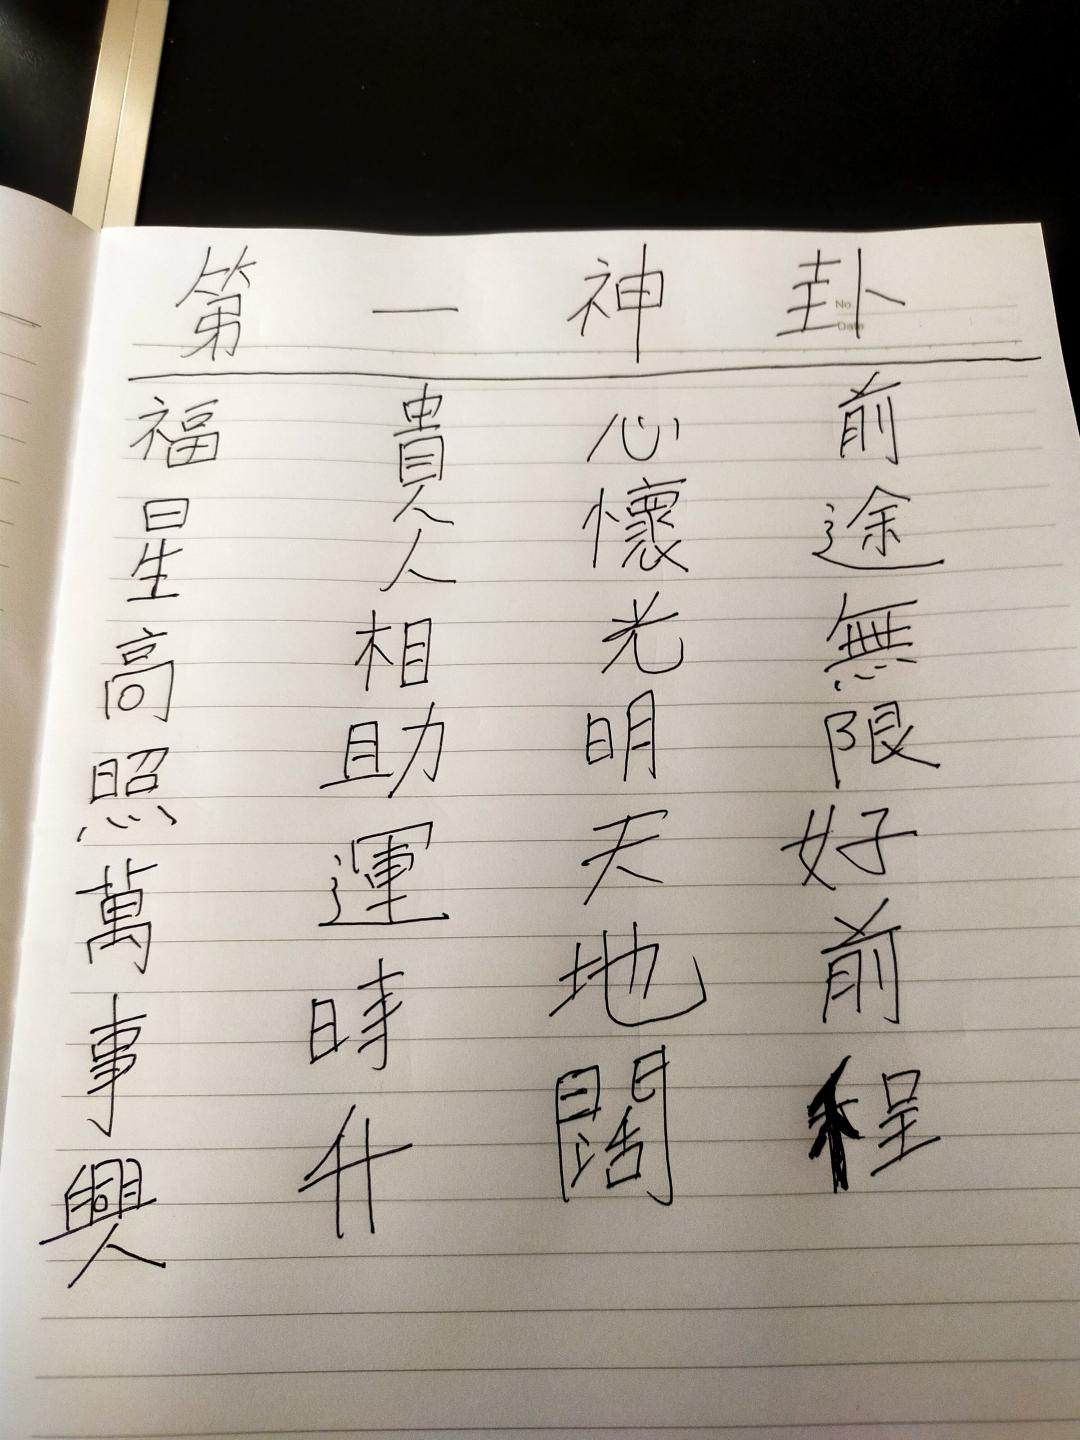 第一神卦
福星高照萬事興
貴人人相助運時升
心懷光明天地闊
前途無限好前程
No.
Date